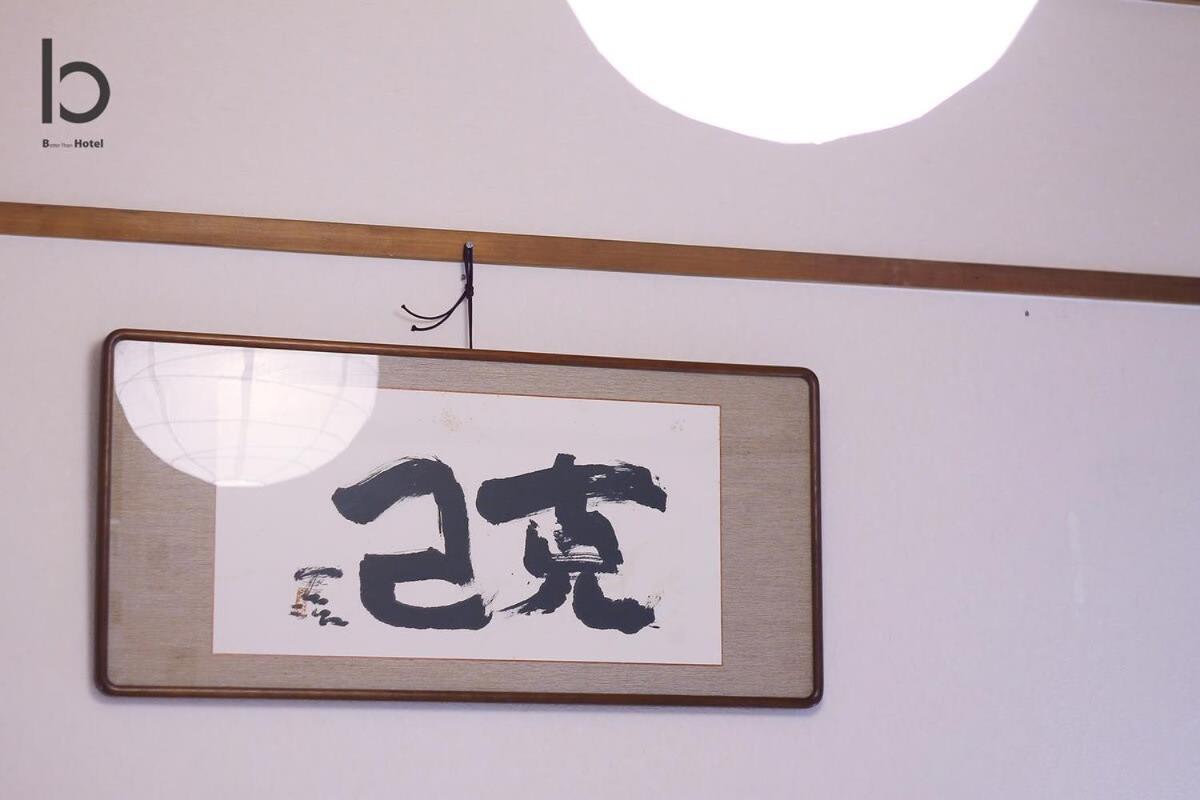 b
Better Than Hotel
克己